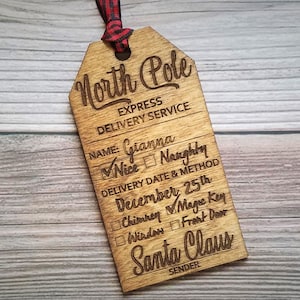 North Pole
EXPRESS
DELIVERY SERVICE
NAME: Gianna
☑ Nice ☐ Naughty
DELIVERY DATE & METHOD
December 25th
☐ Chimney ☑ Magic Key
☐ Window ☐ Front Door
Santa Claus
SENDER